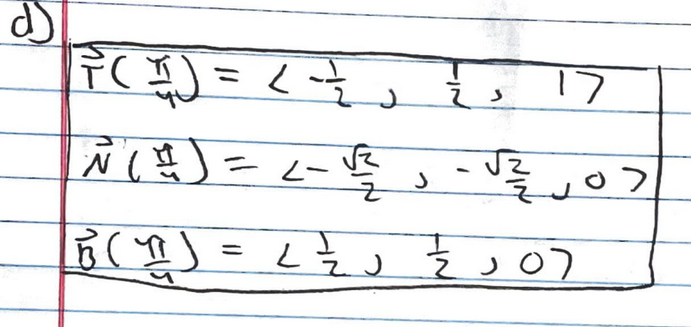 d)
T⃗(π/4) = <-1/2, 1/2, 1>
N⃗(π/4) = <-√2/2, -√2/2, 0>
B⃗(π/4) = <1/2, 1/2, 0>